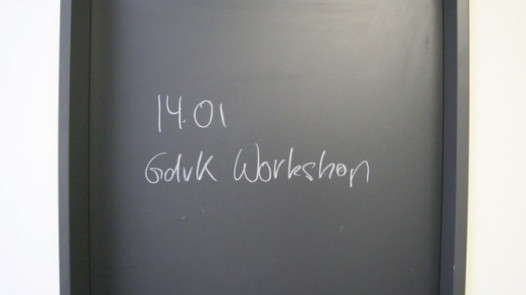 14.01
GdvK Workshop